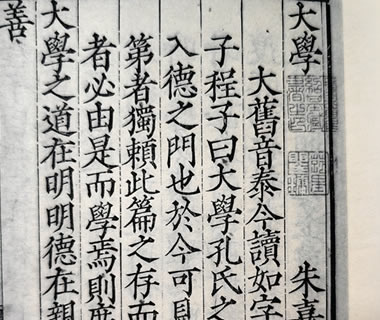 大學 朱熹
大舊音泰今讀如字
子程子曰大學孔氏之
入德之門也於今可見
第者獨賴此篇之存而
者必由是而學焉則庶
大學之道在明明德在親
善